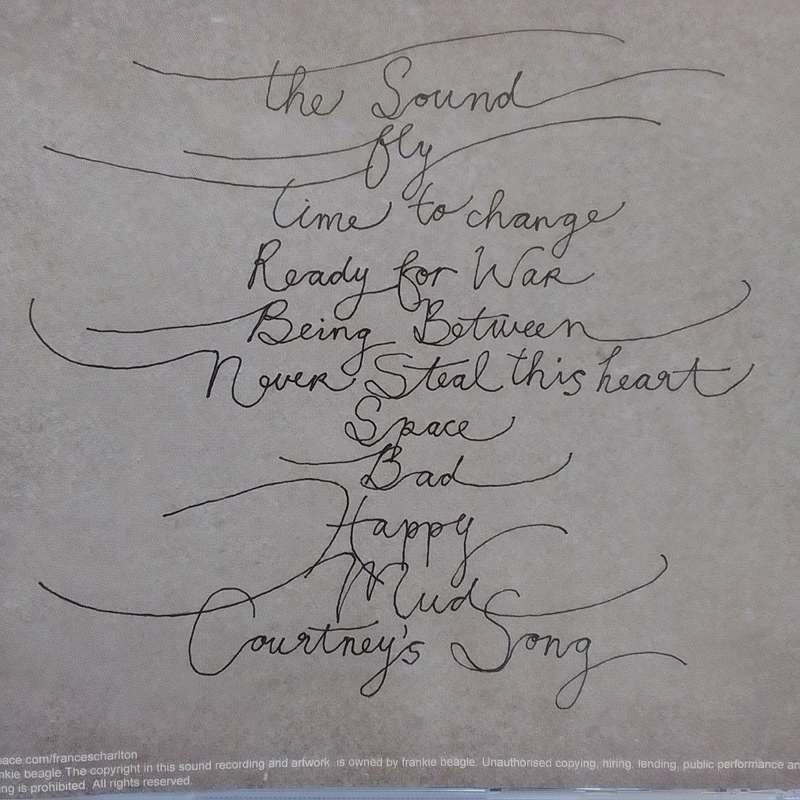 the Sound
fly
time to change
Ready for War
Being Between
Never Steal this heart
Space
Bad
Happy
Mud
Courtney's Song
ace.com/francescharlton
nkie beagle The copyright in this sound recording and artwork is owned by frankie beagle. Unauthorised copying, hiring, lending, public performance an
ng is prohibited. All rights reserved.